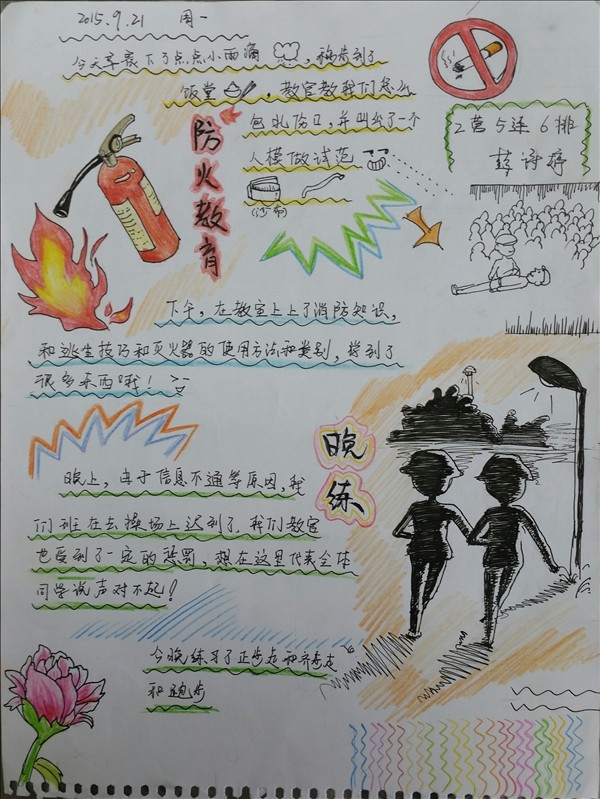 2015.9.21 周一
今天早晨下了点点小雨滴,转步到了
饭堂,教官教我们怎么
包扎伤口,并叫出了一个
人模做试范
(纱布)
防火教育
2营5连6排
诗婷
下午,在教室上上了消防知识,
和逃生技巧和灭火器的使用方法和类别,学到了
很多东西哦!
晚练
晚上,由于信息不通等原因,我
们班在去操场上迟到了,我们教官
也受到了一定的惩罚,想在这里代表全体
同学说声对不起!
今晚练习了正步走和齐步走
和跑步